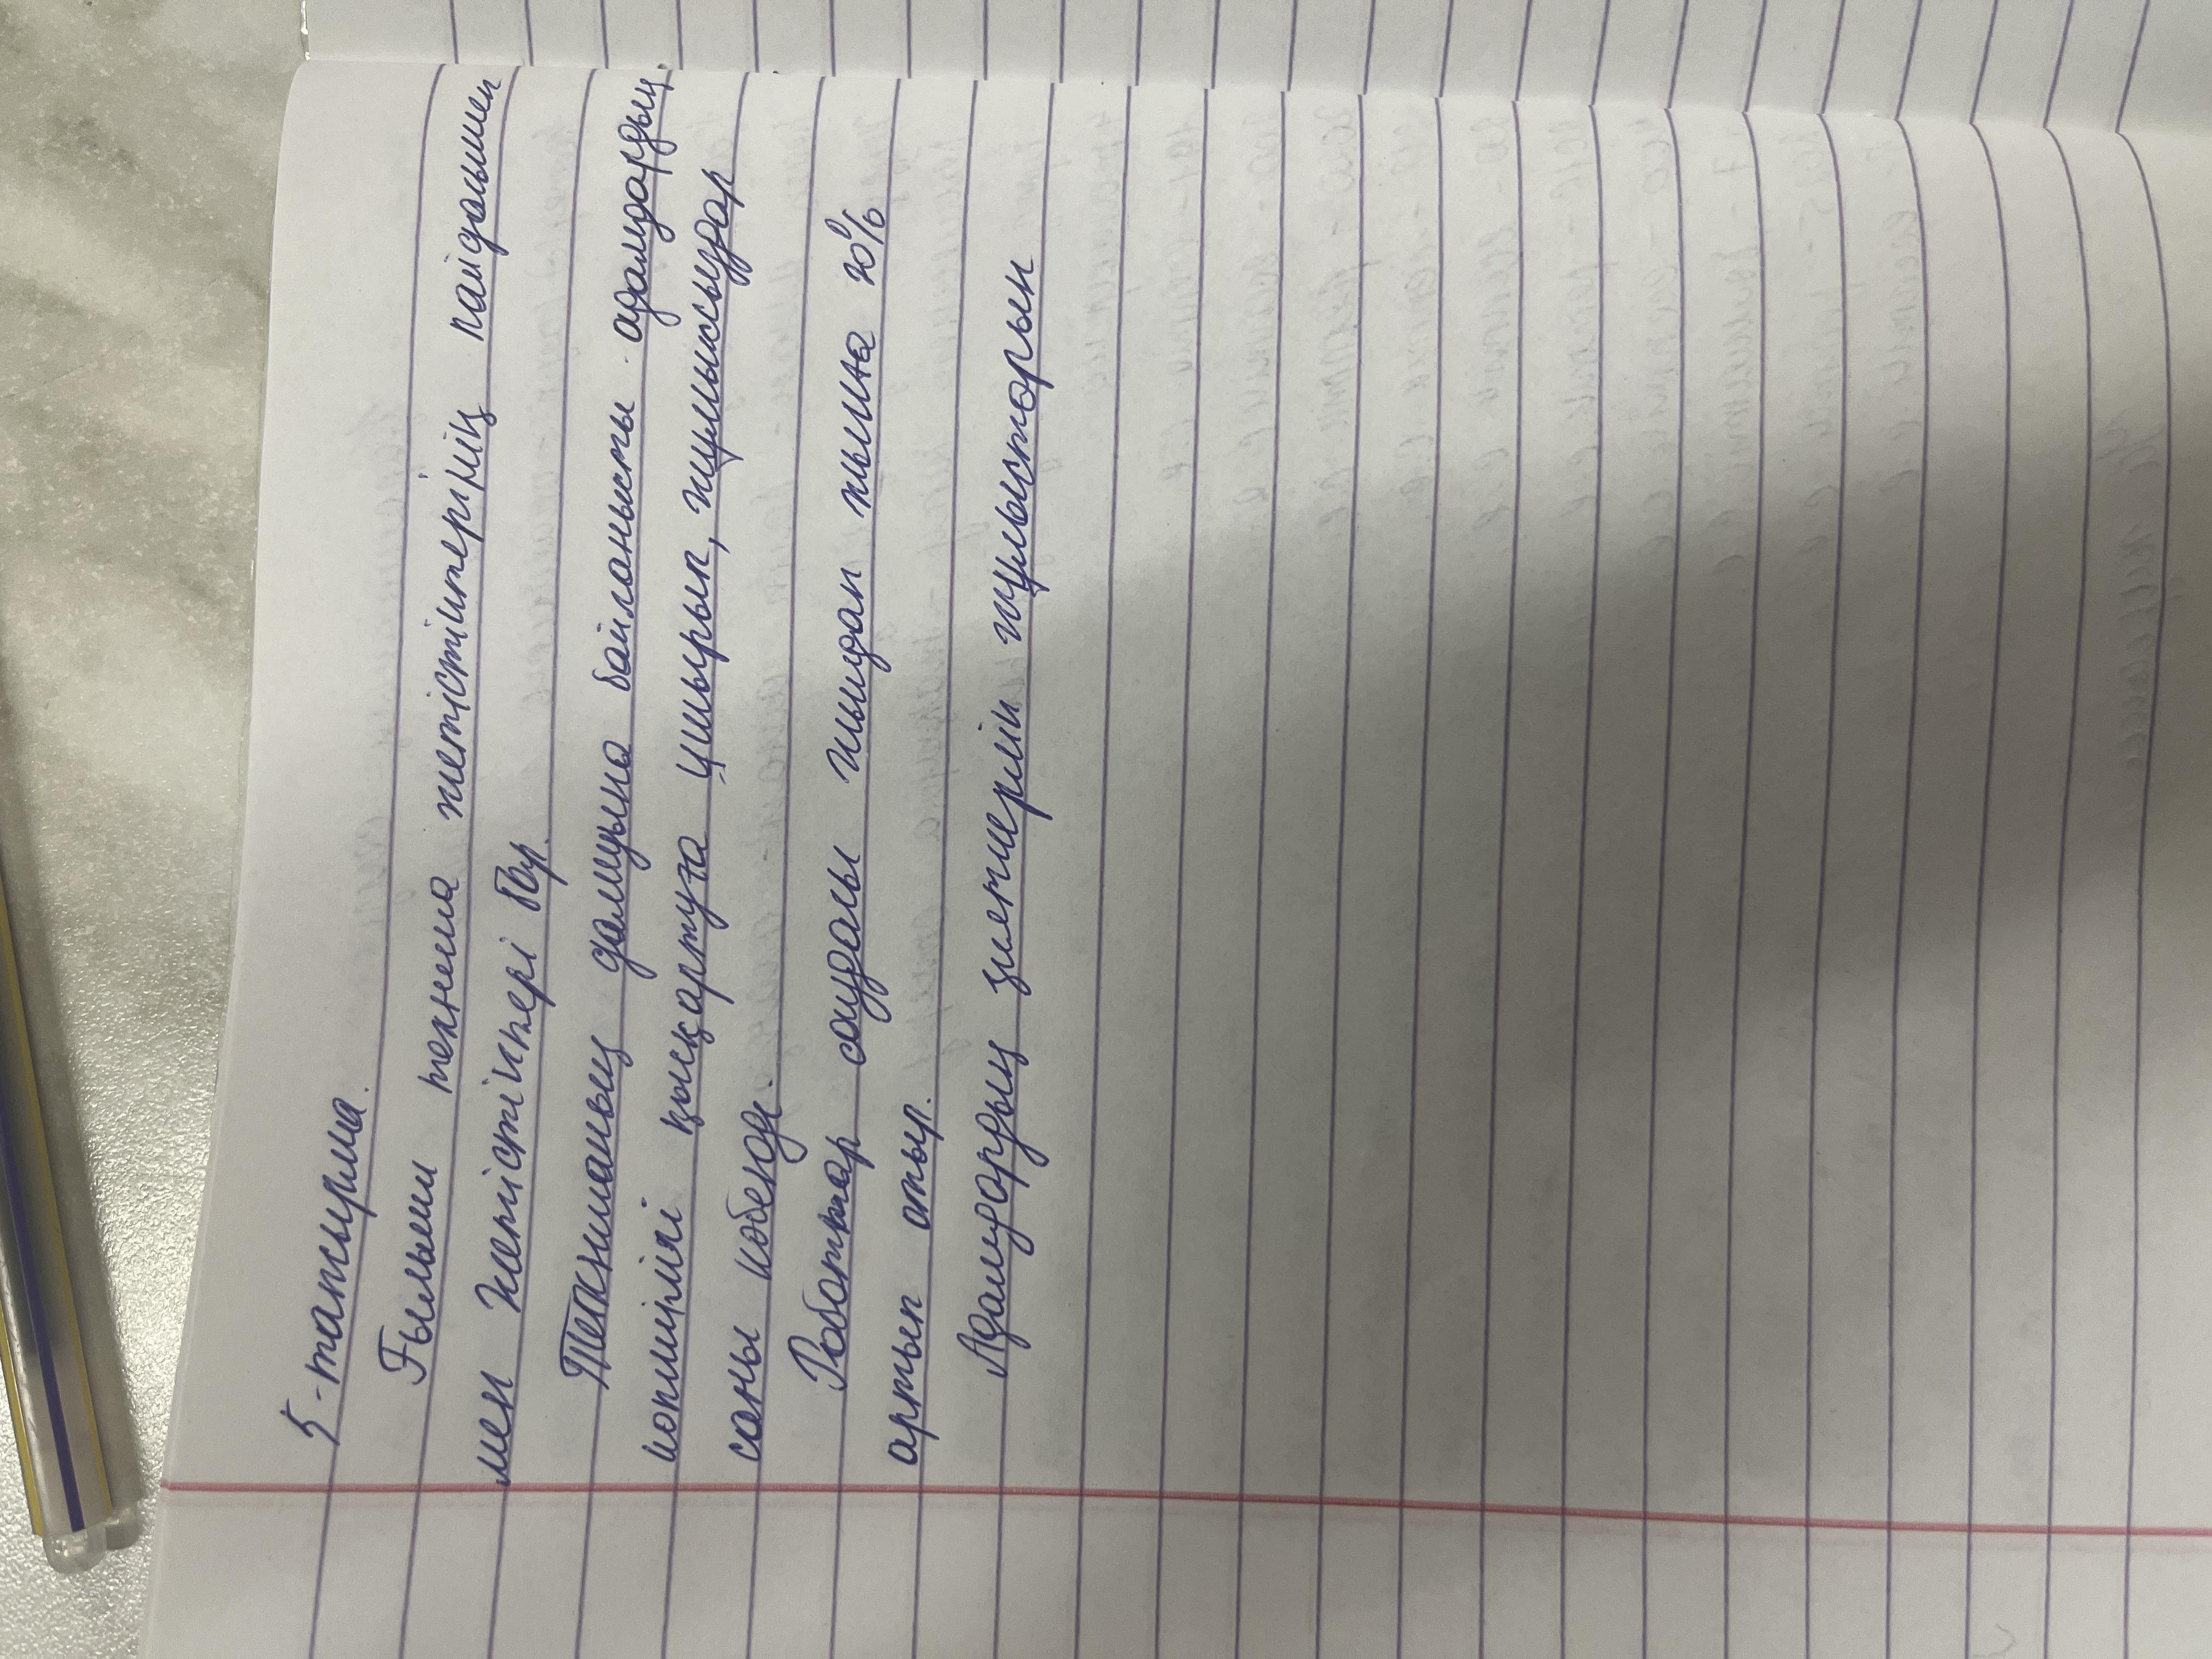 5-тапсырма.
Ғылыми техника жетістіктерінің пайдасымен
мен кемістіктері бар.
Техниканың дамуына байланысты адамдардың
көпшілігі қысқартуға ұшырып, жұмыссыздар
саны көбенді.
Роботтар саудасы жылдан жылға 20%
артып отыр.
Адамдардың үлкерлік жұмыстарын